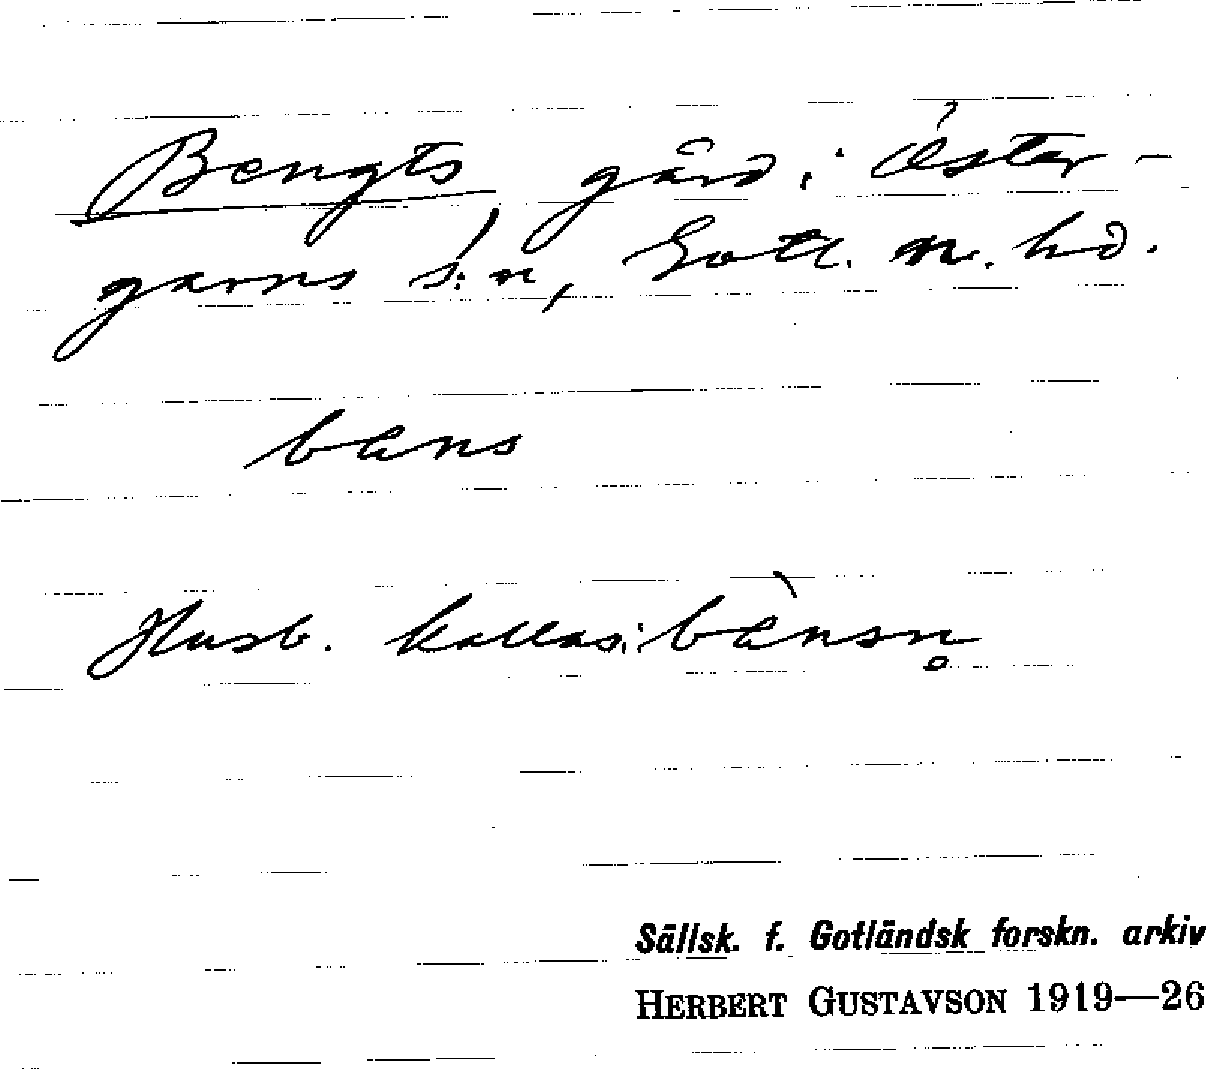 Bengts gård i Öster-
garns s:n, Gotl. n. hd.
bæns
Husb. kallas: bæ̀nsn̥
Sällsk. f. Gotländsk forskn. arkiv
HERBERT GUSTAVSON 1919—26